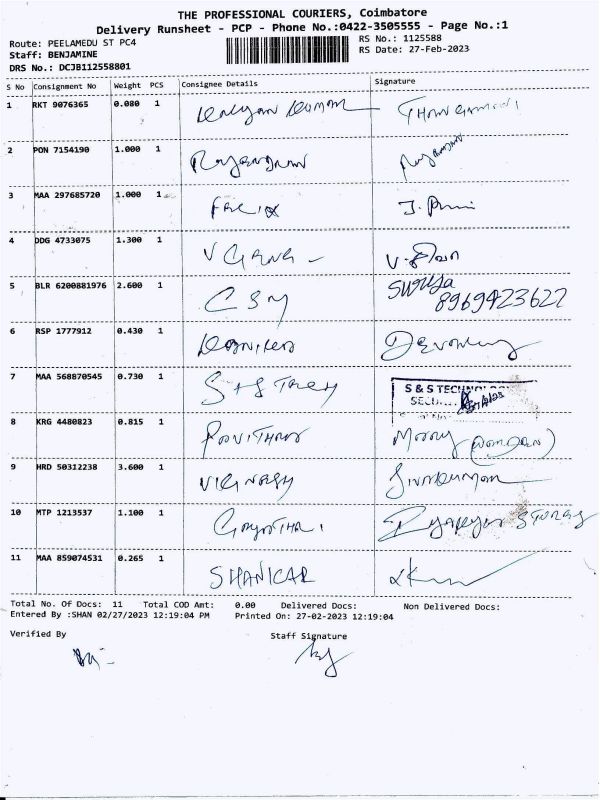 THE PROFESSIONAL COURIERS, Coimbatore
Delivery Runsheet - PCP - Phone No.:0422-3505555 - Page No.:1
Route: PEELAMEDU ST PC4
RS No.: 1125588
Staff: BENJAMINE
RS Date: 27-Feb-2023
DRS No.: DCJB112558801
S No Consignment No Weight PCS Consignee Details Signature
1 RKT 9076365 0.080 1 Kalyan Kumar
2 PON 7154190 1.000 1
3 MAA 297685720 1.000 1 Felix
4 DDG 4733075 1.300 1 V Gana
5 BLR 6200881976 2.600 1 CSM Surya
8969423622
6 RSP 1777912 0.430 1
7 MAA 568870545 0.730 1 S+S Tech S & S TECHNOLOGY
8 KRG 4480823 0.815 1
9 HRD 50312238 3.600 1 VIGNESH Sivakumar
10 MTP 1213537 1.100 1 Gayathri STORES
11 MAA 859074531 0.265 1 SHANKAR
Total No. Of Docs: 11 Total COD Amt: 0.00 Delivered Docs: Non Delivered Docs:
Entered By :SHAN 02/27/2023 12:19:04 PM Printed On: 27-02-2023 12:19:04
Verified By Staff Signature